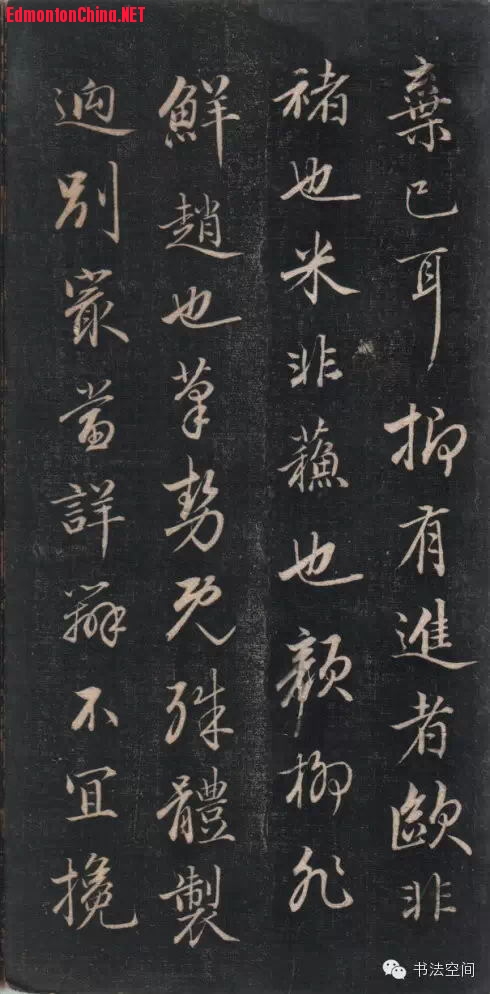 EdmontonChina.NET
棄已耳抑有進者歐非
褚也米非蘓也顏柳非
鮮趙也筆勢既殊體製
逈別㝡當詳辨不宜攙
书法空间